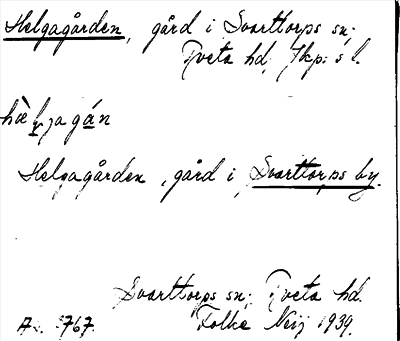 Helgagården, gård i Svarttorps sn;
Tveta hd; Jkp: s l.
hæ̀ljagán
Helgagården, gård i Svarttorps by.
Svarttorps sn; Tveta hd.
Folke Neij 1939.